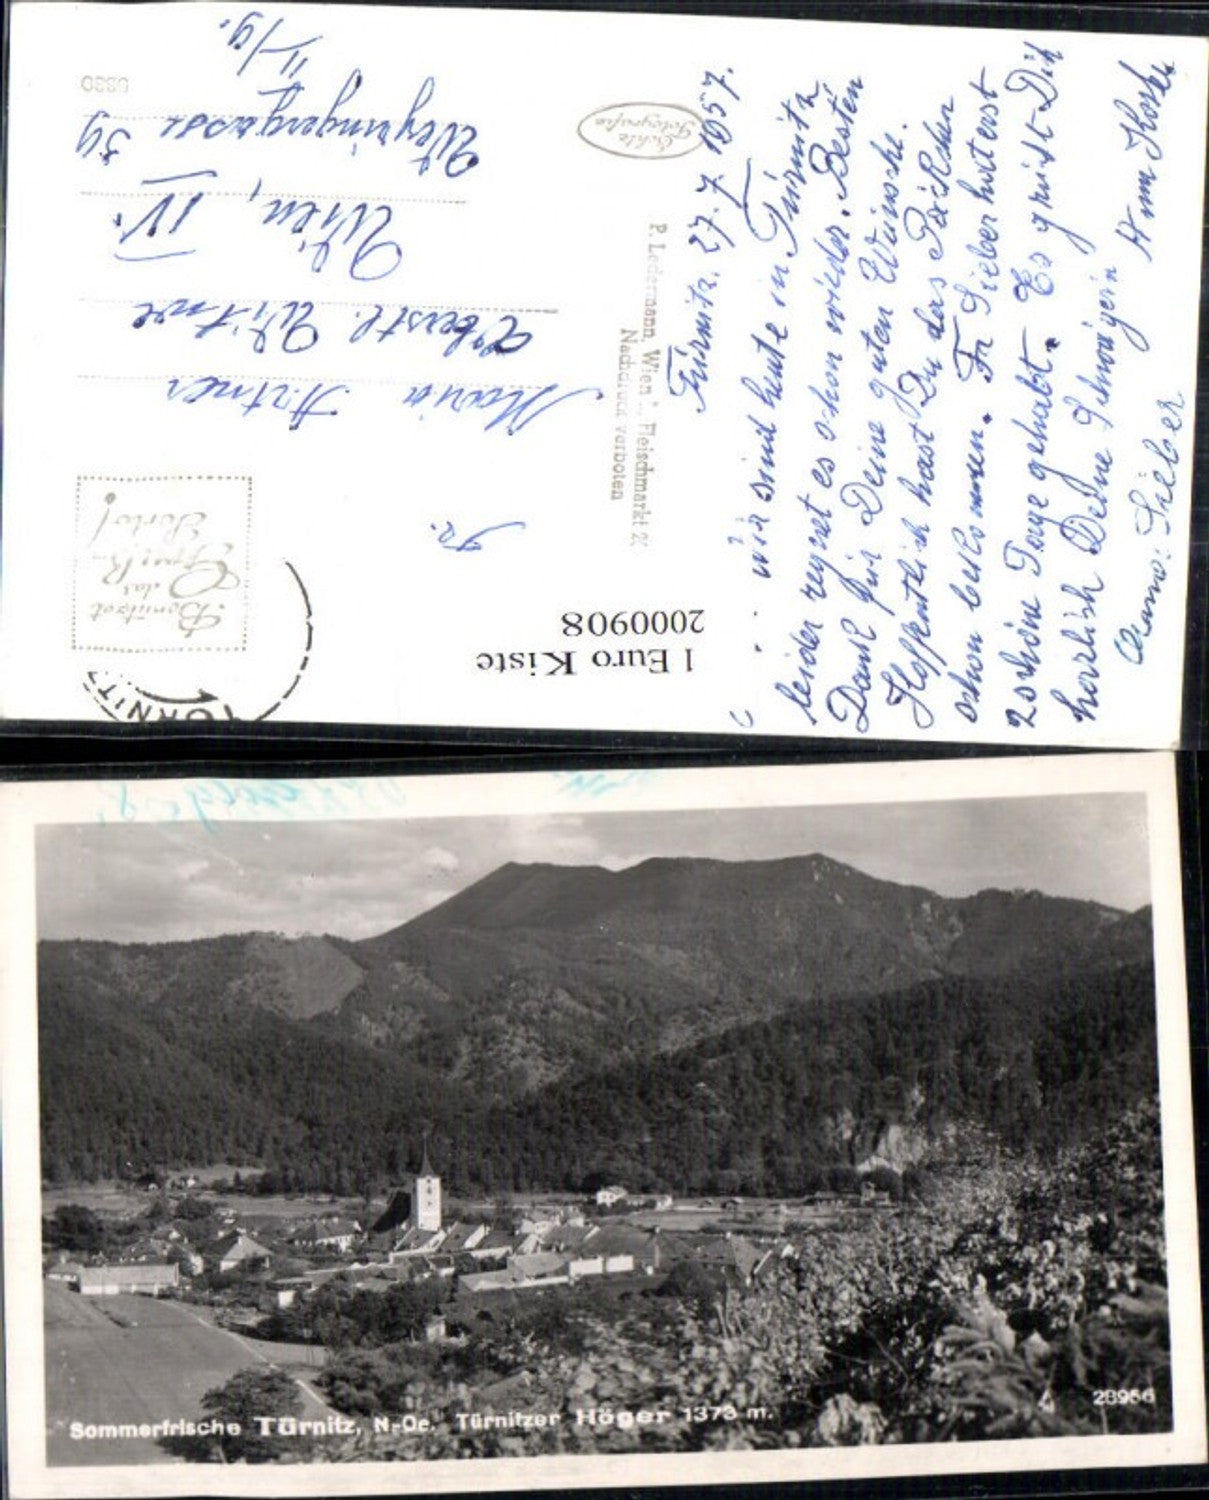 Türnitz, 27.7.1957.
Wir sind heute in Türnitz
leider regnet es schon wieder. Besten
Dank für Deine guten Wünsche.
Hoffentlich hast Du das Päckchen
schon bekommen. Fr Sieber hat erst
2 schöne Tage gehabt. Es grüßt Dich
herzlich Deine Schwägerin
Anna Sieber
Fr.
Maria Artner
Oberstl. Witwe
Wien, IV.
Weyringergasse 39
II/9.
0830
Echte
Fotografie
P. Ledermann, Wien I., Fleischmarkt 2
Nachdruck verboten
Benützet
das
Expreß-
Porto!
TÜRNITZ
1 Euro Kiste
2000908
Sommerfrische Türnitz, N.-Oe. Türnitzer Höger 1373 m.
28956